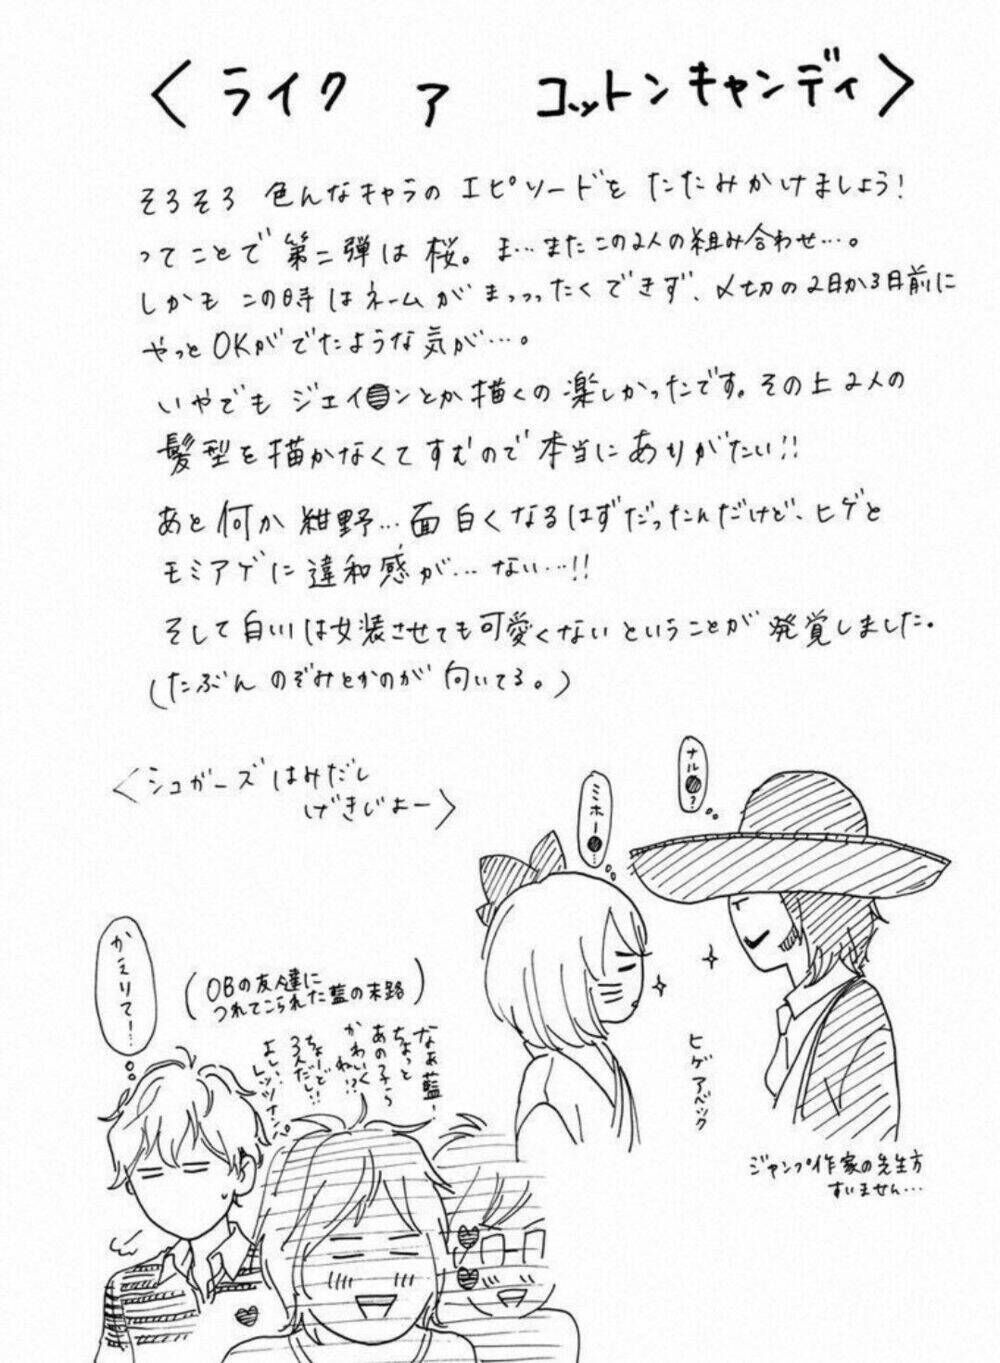 ＜ライク ア コットンキャンディ＞
そろそろ 色んなキャラの エピソードを たたみかけましょう！
ってことで 第二弾は 桜。ま…またこの2人の組み合わせ…。
しかも この時はネームが まっっったくできず、〆切の2日か3日前に
やっとOKがでたような気が…。
いやでも ジェイ●ンとか描くの楽しかったです。その上2人の
髪型を描かなくてすむので本当にありがたい!!
あと何か 紺野…面白くなるはずだったんだけど、ヒゲと
モミアゲに違和感が…ない…!!
そして白川は女装させても可愛くないということが 発覚しました。
(たぶん のぞみとかのが 向いてる。)
＜シュガーズはみだし
げきじょー＞
ナル●?
ミホー●…
ヒゲアベック
ジャンプ作家の先生方
すいません…
かえりて!…
(OBの友人達に
つれてこられた藍の末路)
なぁ藍!
ちょっと
あの子ら
かわいく
ね!?
ちょーど
3人だし!!
よし…
レッツナンパ